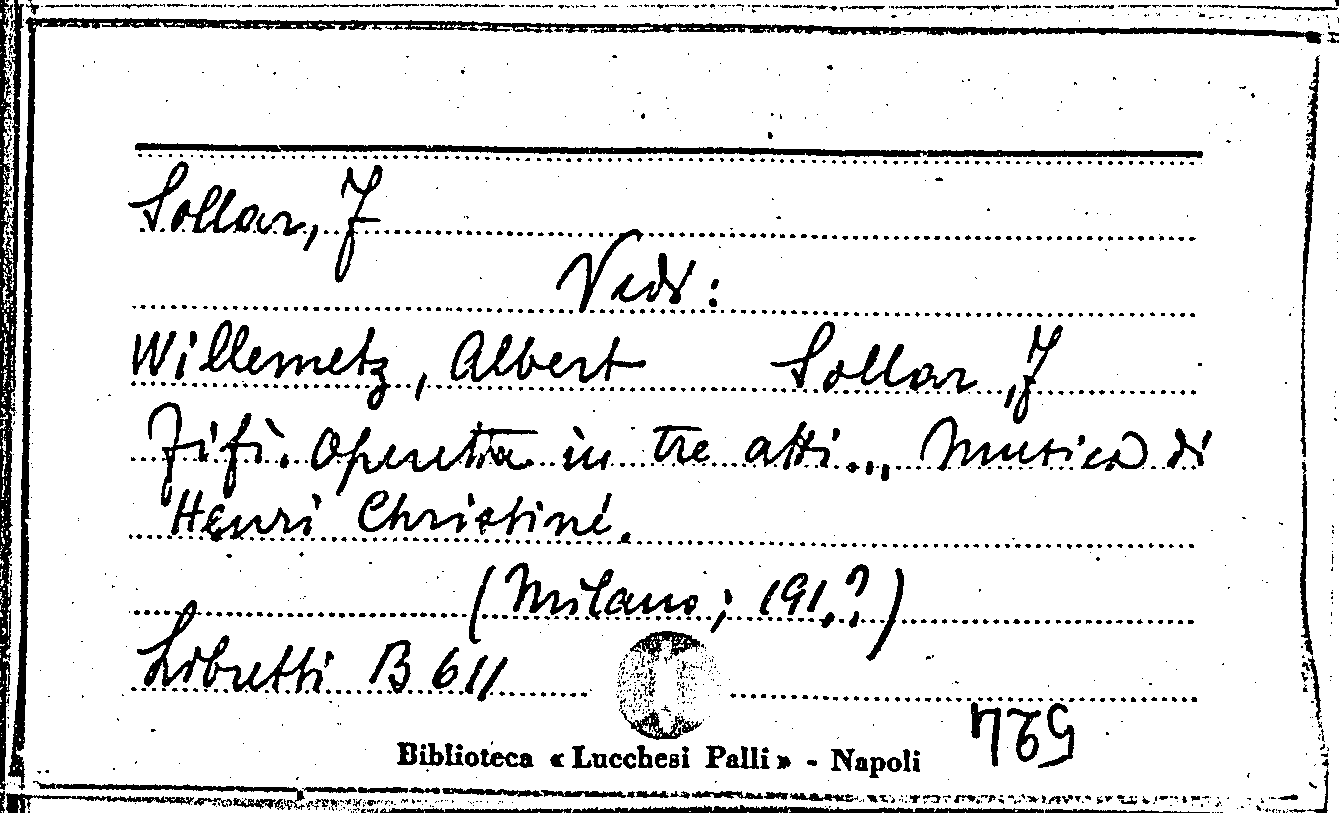 Sollar, F
Vedi:
Willemetz, Albert Sollar, F
Fifì. Operetta in tre atti... Musica di
Henri Christiné.
(Milano; 191.?)
Libretti B 611
Biblioteca « Lucchesi Palli » - Napoli